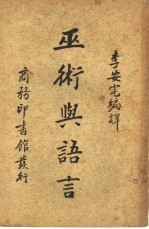 李安宅編譯
巫術與語言
商務印書館發行